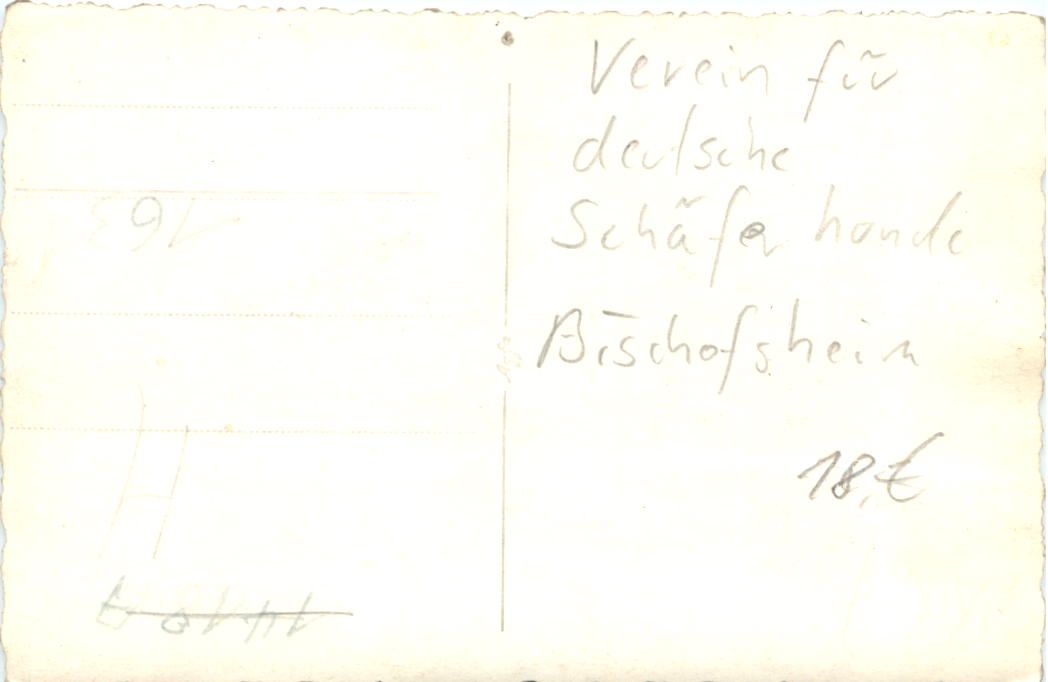 Verein für
deutsche
Schäferhunde
Bischofsheim
18,€
163
H